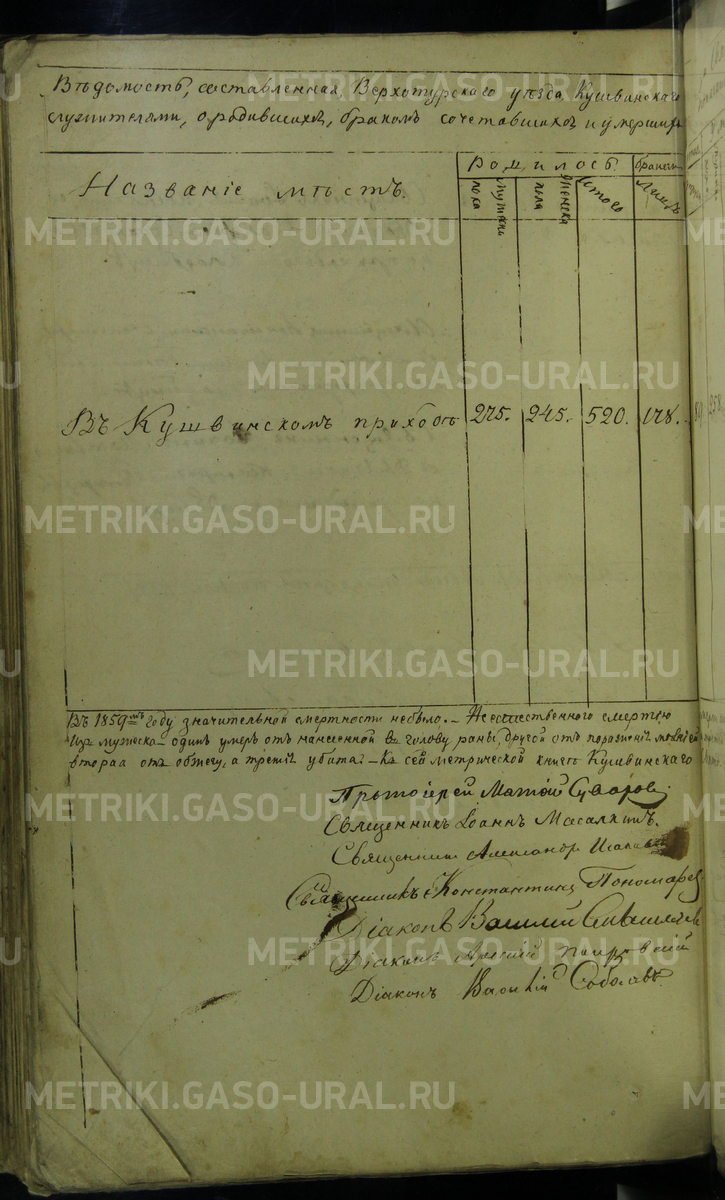 Вѣдомость, составленная Верхотурскаго уѣзда Кушвинскаго
служителями, о родившихся, бракомъ сочетавшихся и умершихъ
Названіе мѣстъ.
Родилось.
мужеска пола
женска пола
Итого
браковъ
Лицъ
Въ Кушвинскомъ приходѣ 275. 245. 520. 178.
Въ 1859мъ году значительной смертности небыло. – Неестественного смертію
изъ мужеска одинъ умеръ отъ нанесенной въ голову раны, другой отъ
вторая отъ обжегу, а третій убита? – Къ сей метрической книгѣ Кушвинскаго
Протоіерей Матѳій Суворовъ.
Священникъ Іоаннъ Масалкинъ.
Священникъ Александръ
Священникъ Константинъ Пономаревъ
Діаконъ Василій
Діаконъ
Діаконъ Василій Соболевъ
METRIKI.GASO-URAL.RU